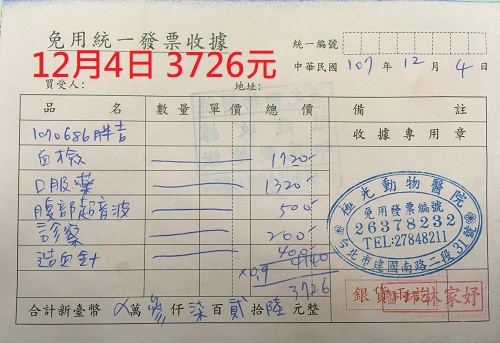 免用統一發票收據
統一編號
12月4日 3726元
中華民國 107年 12月 4日
買受人: 地址:
品名 數量 單價 總價 備註
1070686胖吉 收據專用章
血檢 1720
口服藥 1320
腹部超音波 500
診察 200
造血針 400
4140
×0.9
3726
極光動物醫院
免用發票編號
26378232
TEL:27848211
台北市建國南路二段31號
合計新臺幣 萬 參仟 柒百 貳拾 陸元整
銀貨兩訖
林家妤